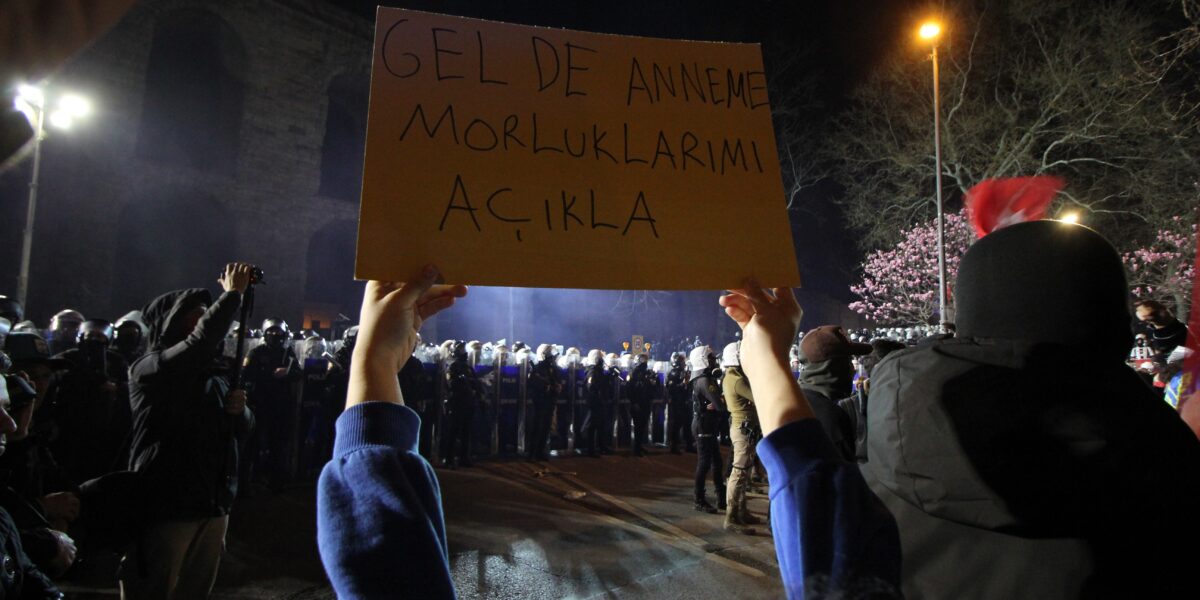 GEL DE ANNEME
MORLUKLARIMI
AÇIKLA
POLİS